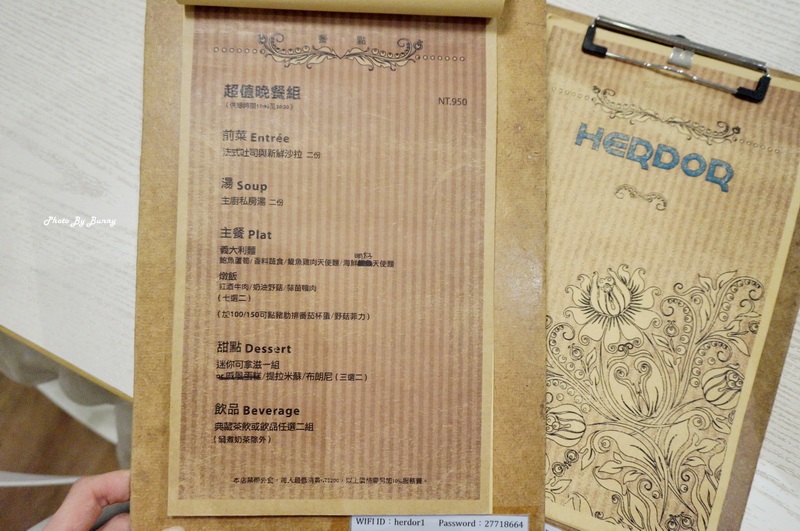 餐點
超值晚餐組
NT.950
前菜 Entrée
法式吐司與新鮮沙拉 二份
湯 Soup
主廚私房湯 二份
主餐 Plat
義大利麵
鮑魚蘆筍/香料蔬食/鯷魚雞肉天使麵/海鮮天使麵
燉飯
紅酒牛肉/奶油野菇/
(七選二)
(加100/150可點豬肋排番茄杯蛋/野菇菲力)
甜點 Dessert
迷你可拿滋一組
/提拉米酥/布朗尼 (三選二)
飲品 Beverage
典藏茶飲或飲品任選二組
(鍋煮奶茶除外)
WIFI ID：herdor1 Password：27718664
HERDOR
Photo By Bunny